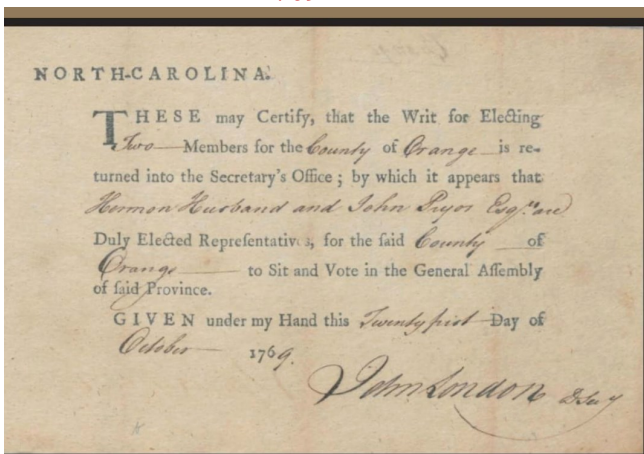 NORTH-CAROLINA.
THESE may Certify, that the Writ for Electing
Two Members for the County of Orange is re-
turned into the Secretary's Office; by which it appears that
Hermon Husband and John Pryor Esqrs. are
Duly Elected Representatives, for the said County of
Orange to Sit and Vote in the General Assembly
of said Province.
GIVEN under my Hand this Twenty first Day of
October 1769.
John London D Secy